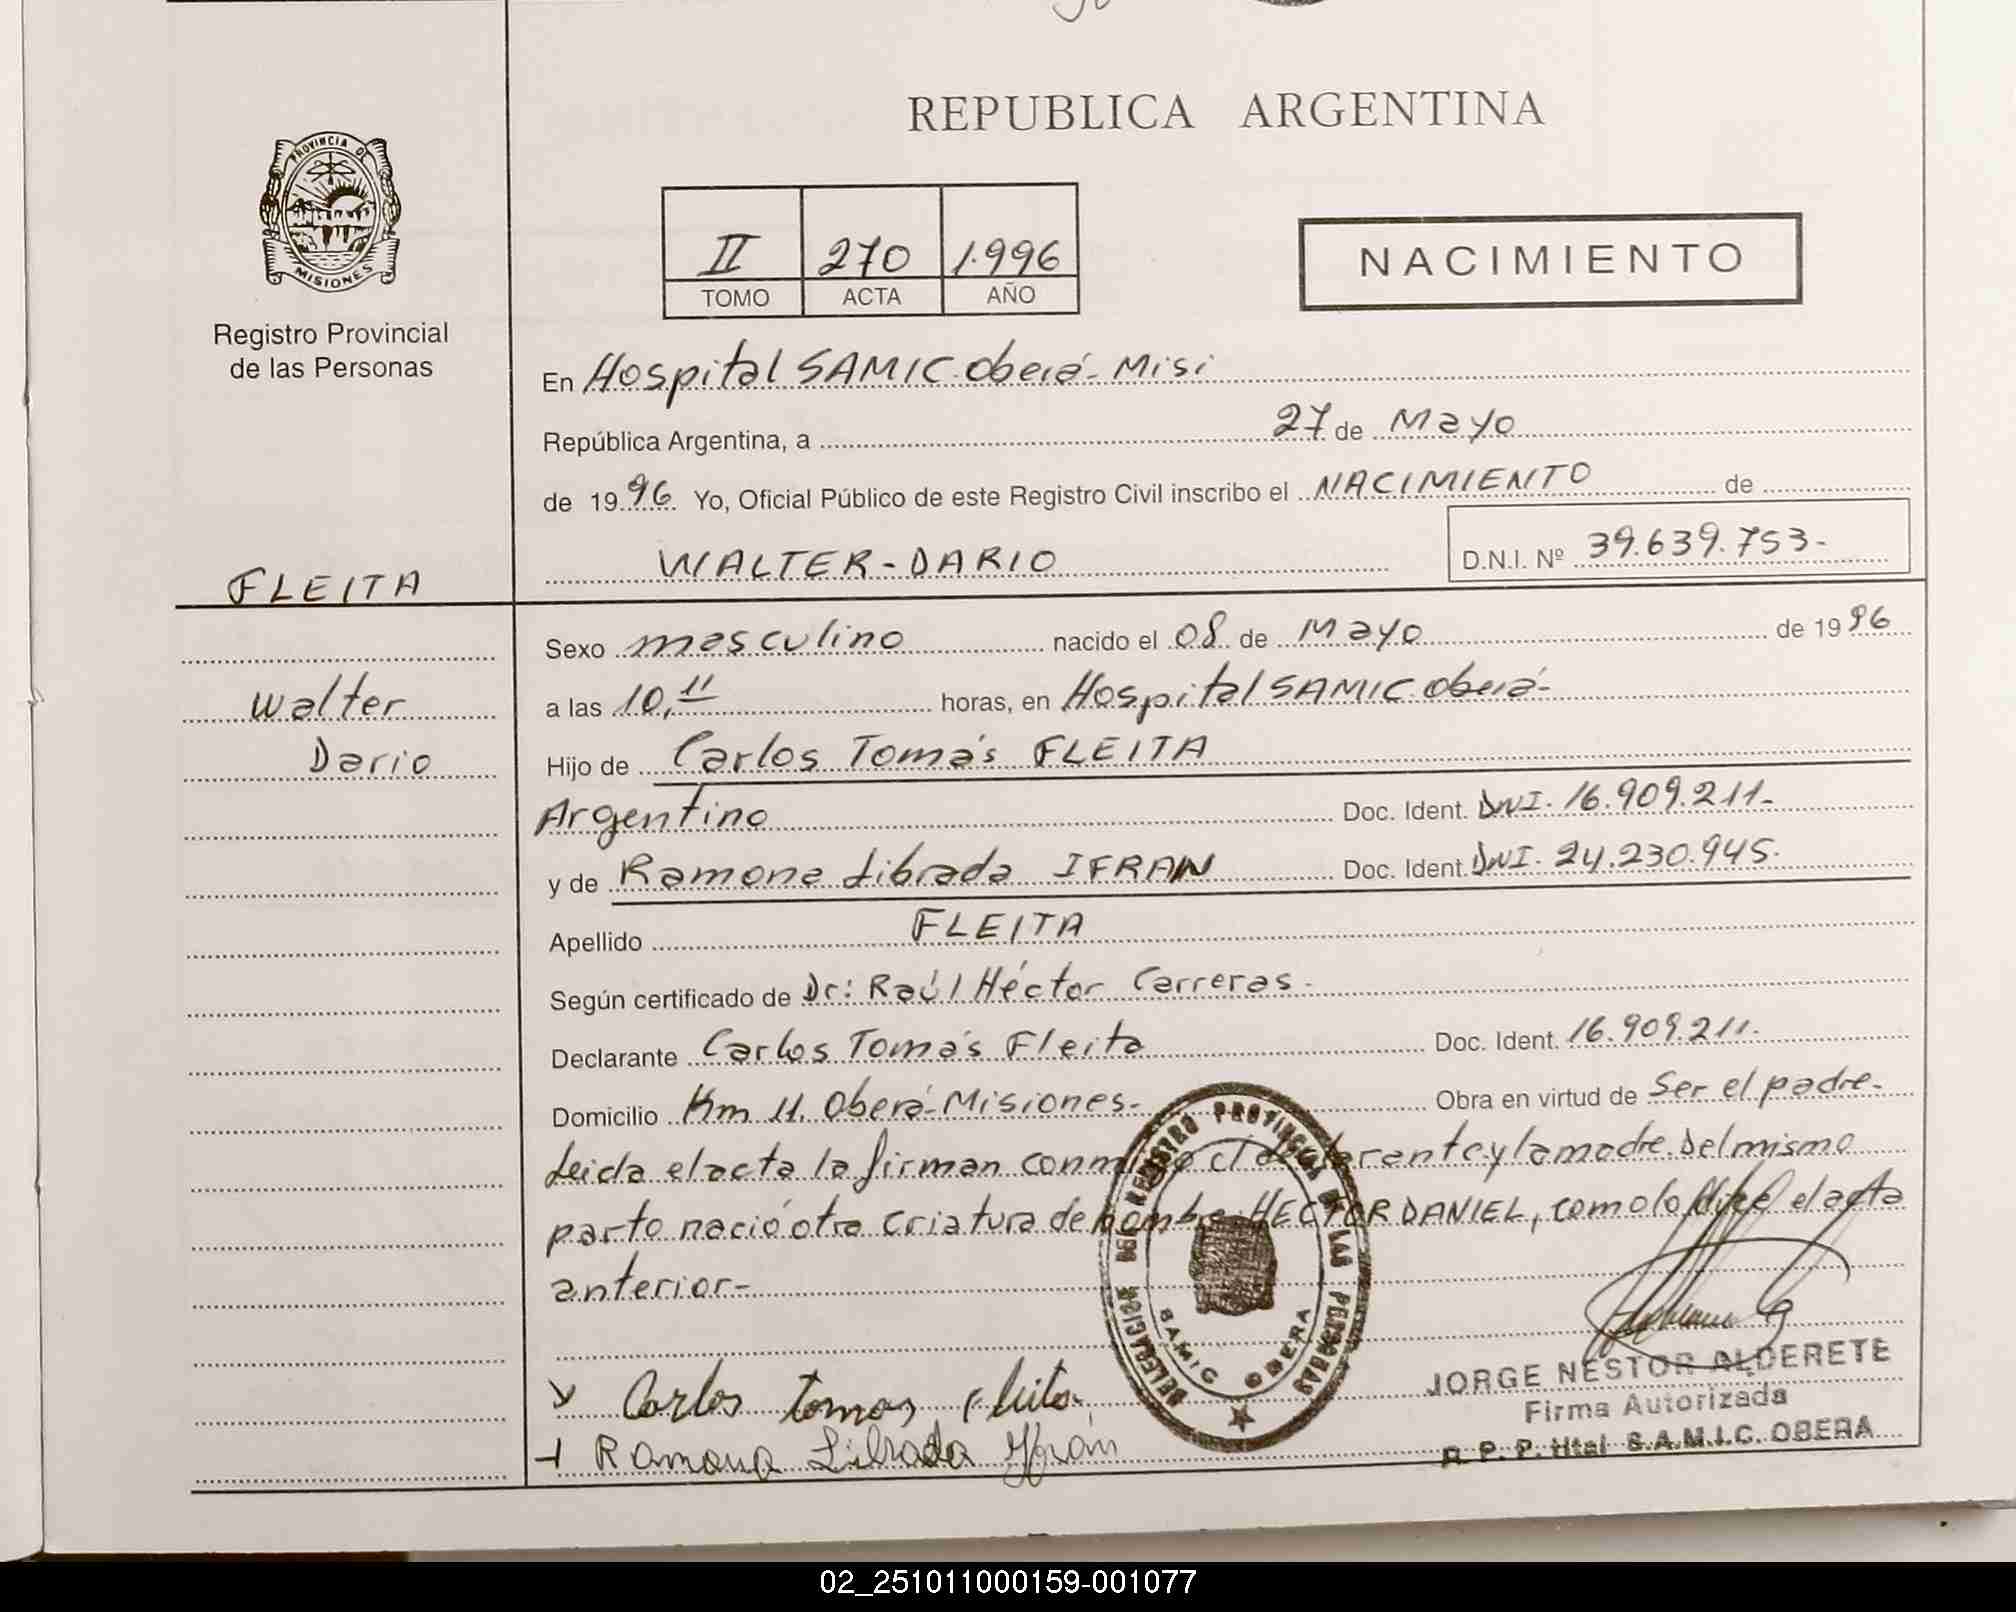 REPUBLICA ARGENTINA
PROVINCIA DE
MISIONES
Registro Provincial
de las Personas
II 270 1.996
TOMO ACTA AÑO
NACIMIENTO
En Hospital SAMIC Oberá- Misi
República Argentina, a 27 de Mayo
de 1996. Yo, Oficial Público de este Registro Civil inscribo el NACIMIENTO de
WALTER-DARIO
D.N.I. Nº 39.639.753-
FLEITA
Walter
Dario
Sexo masculino nacido el 08 de Mayo de 1996
a las 10,11 horas, en Hospital SAMIC Oberá-
Hijo de Carlos Tomás FLEITA
Argentino Doc. Ident. DNI. 16.909.211-
y de Ramona Librada IFRAN Doc. Ident. DNI. 24.230.945.
Apellido FLEITA
Según certificado de Dr: Raúl Héctor Carreras-
Declarante Carlos Tomás Fleita Doc. Ident. 16.909.211.
Domicilio Km 11. Oberá-Misiones- Obra en virtud de Ser el padre-
Leida el acta la firman conmigo el declarante y la madre. Del mismo
parto nació otra criatura de nombre HECTOR DANIEL, como lo dice el acta
anterior-
DELEGACION DEL REGISTRO PROVINCIAL DE LAS PERSONAS
SAMIC OBERA
Carlos tomas fleita
Ramona Librada Ifrán
JORGE NESTOR ALDERETE
Firma Autorizada
R. P. P. Htal S.A.M.I.C. OBERA
02_251011000159-001077